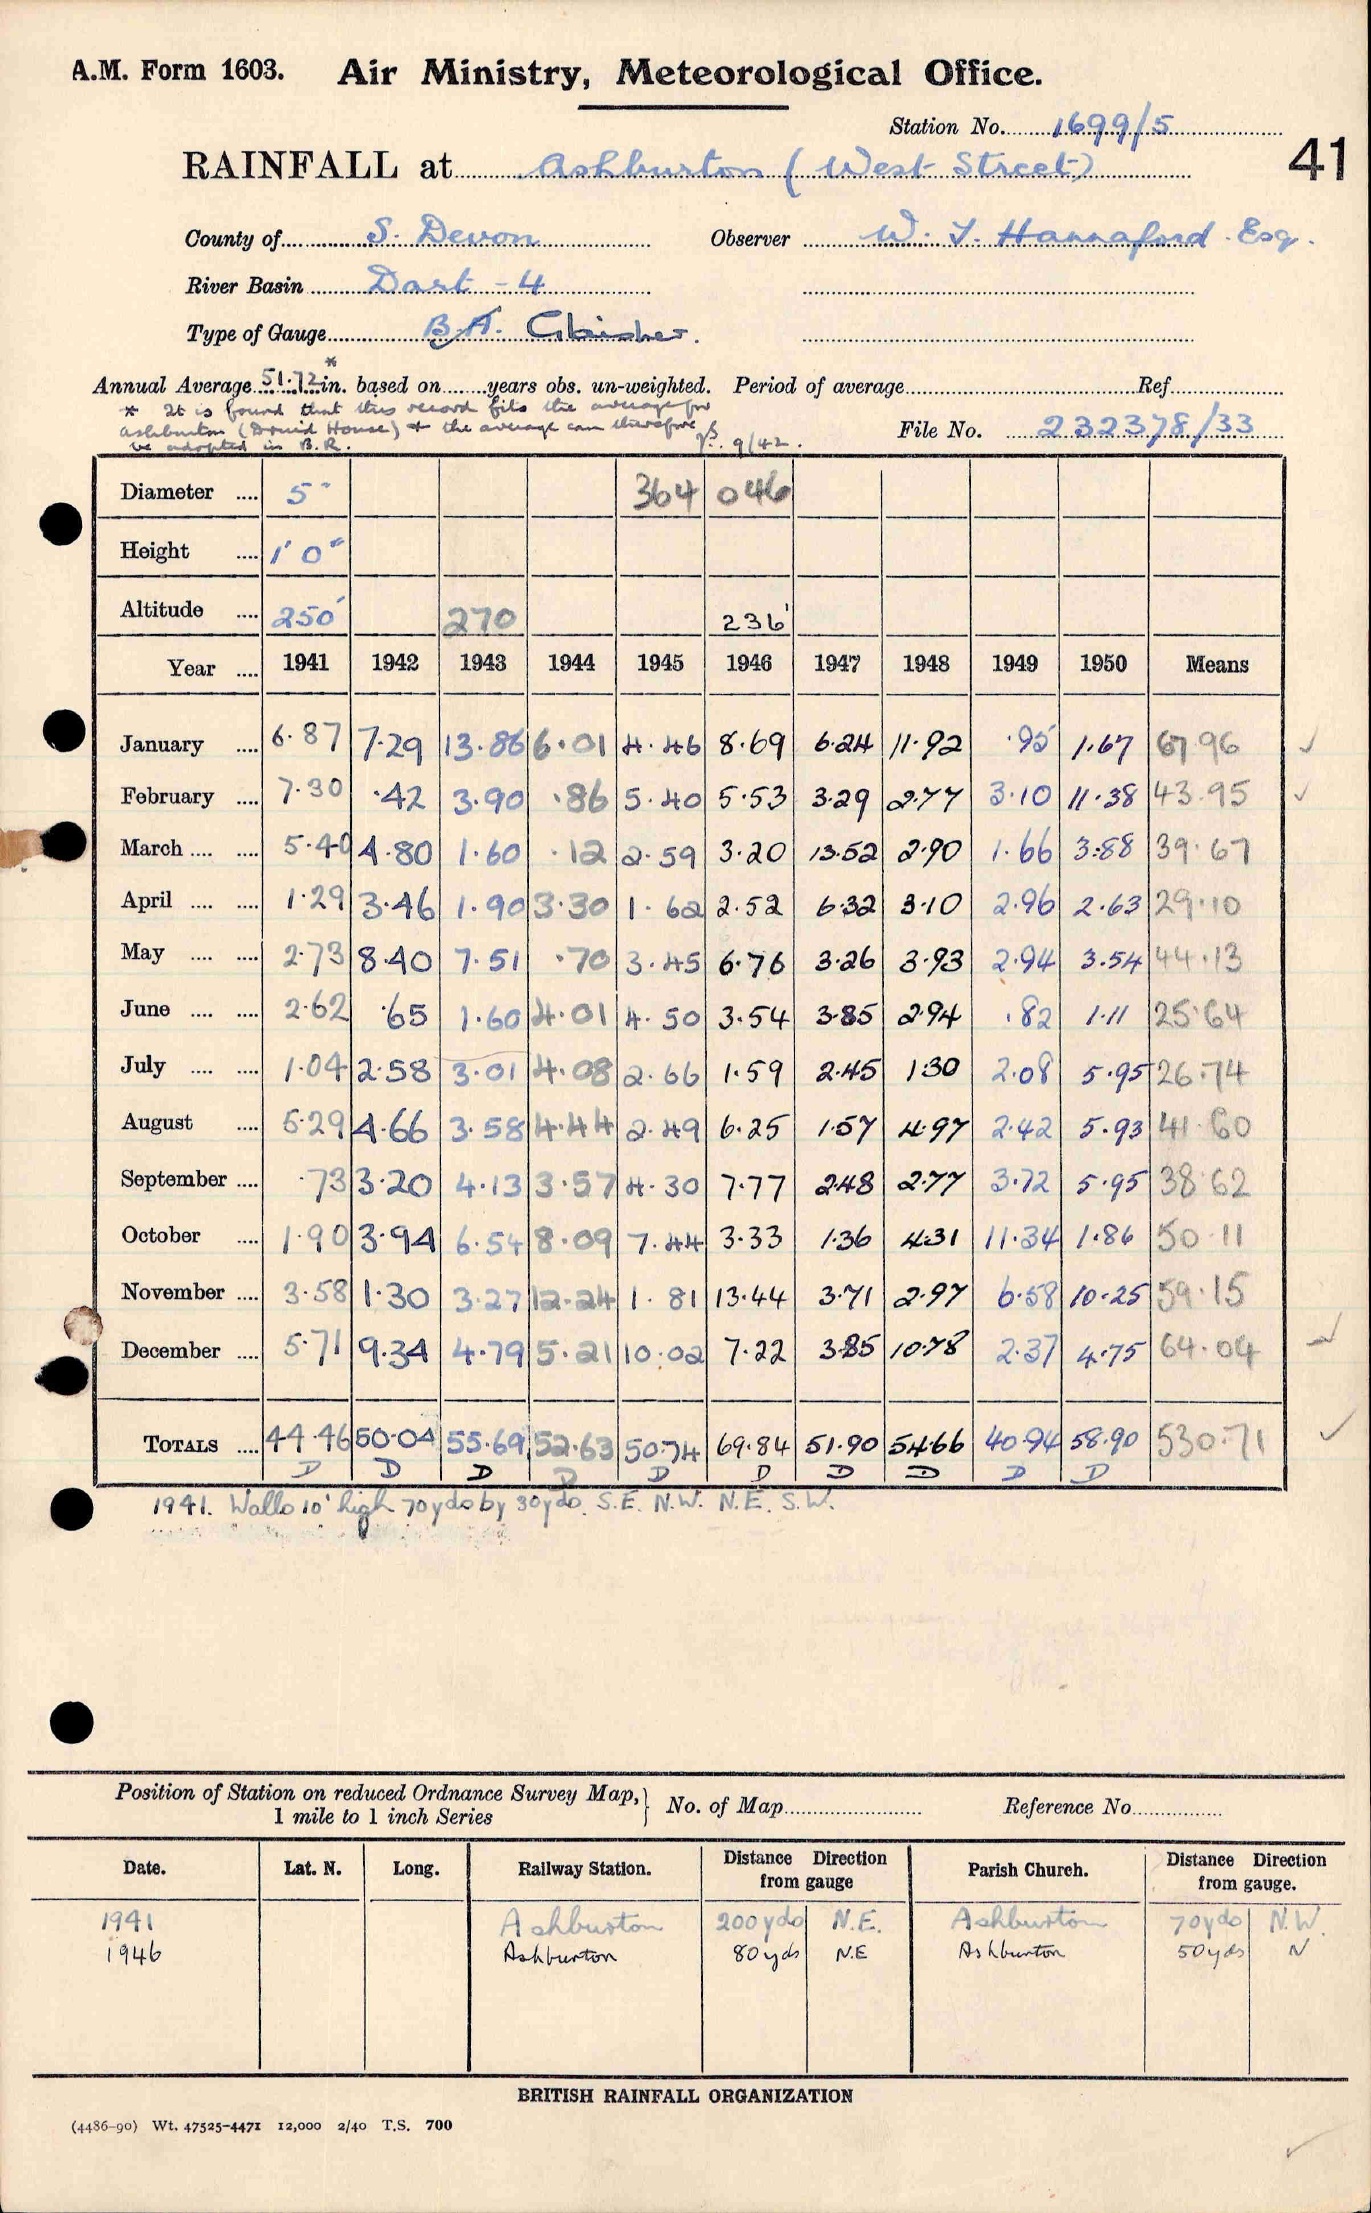 A.M. Form 1603. Air Ministry, Meteorological Office.
Station No. 1699/5
41
RAINFALL at Ashburton (West Street)
County of S. Devon Observer W. J. Hannaford Esq.
River Basin Dart - 4
Type of Gauge B.A. Glaisher.
Annual Average 51.72* in. based on years obs. un-weighted. Period of average Ref
* It is found that this record fits the average for
Ashburton (Druid House) & the average can therefore
be adopted in B.R. 9/42.
File No. 232378/33
Diameter 5" 364 046
Height 1' 0"
Altitude 250' 270 236'
Year 1941 1942 1943 1944 1945 1946 1947 1948 1949 1950 Means
January 6.87 7.29 13.86 6.01 4.46 8.69 6.24 11.92 .95 1.67 67.96 ✓
February 7.30 .42 3.90 .86 5.40 5.53 3.29 2.77 3.10 11.38 43.95 ✓
March 5.40 4.80 1.60 .12 2.59 3.20 13.52 2.90 1.66 3.88 39.67
April 1.29 3.46 1.90 3.30 1.62 2.52 6.32 3.10 2.96 2.63 29.10
May 2.73 8.40 7.51 .70 3.45 6.76 3.26 3.93 2.94 3.54 44.13
June 2.62 .65 1.60 4.01 4.50 3.54 3.85 2.94 .82 1.11 25.64
July 1.04 2.58 3.01 4.08 2.66 1.59 2.45 1.30 2.08 5.95 26.74
August 5.29 4.66 3.58 4.44 2.49 6.25 1.57 4.97 2.42 5.93 41.60
September .73 3.20 4.13 3.57 4.30 7.77 2.48 2.77 3.72 5.95 38.62
October 1.90 3.94 6.54 8.09 7.44 3.33 1.36 4.31 11.34 1.86 50.11
November 3.58 1.30 3.27 12.24 1.81 13.44 3.71 2.97 6.58 10.25 59.15
December 5.71 9.34 4.79 5.21 10.02 7.22 3.85 10.78 2.37 4.75 64.04 ✓
TOTALS 44.46 50.04 55.69 52.63 50.74 69.84 51.90 54.66 40.94 58.90 530.71 ✓
D D D D D D D D D D
1941. Walls 10' high 70yds by 30yds. S.E. N.W. N.E. S.W.
Position of Station on reduced Ordnance Survey Map, 1 mile to 1 inch Series } No. of Map Reference No
Date. Lat. N. Long. Railway Station. Distance Direction from gauge Parish Church. Distance Direction from gauge.
1941 Ashburton 200yds N.E. Ashburton 70yds N.W.
1946 Ashburton 80yds N.E Ashburton 50yds N
BRITISH RAINFALL ORGANIZATION
(4486-90) Wt. 47525-4471 12,000 2/40 T.S. 700